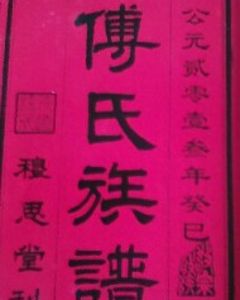 公元贰零壹叁年癸巳
傅氏族譜
穆思堂刊